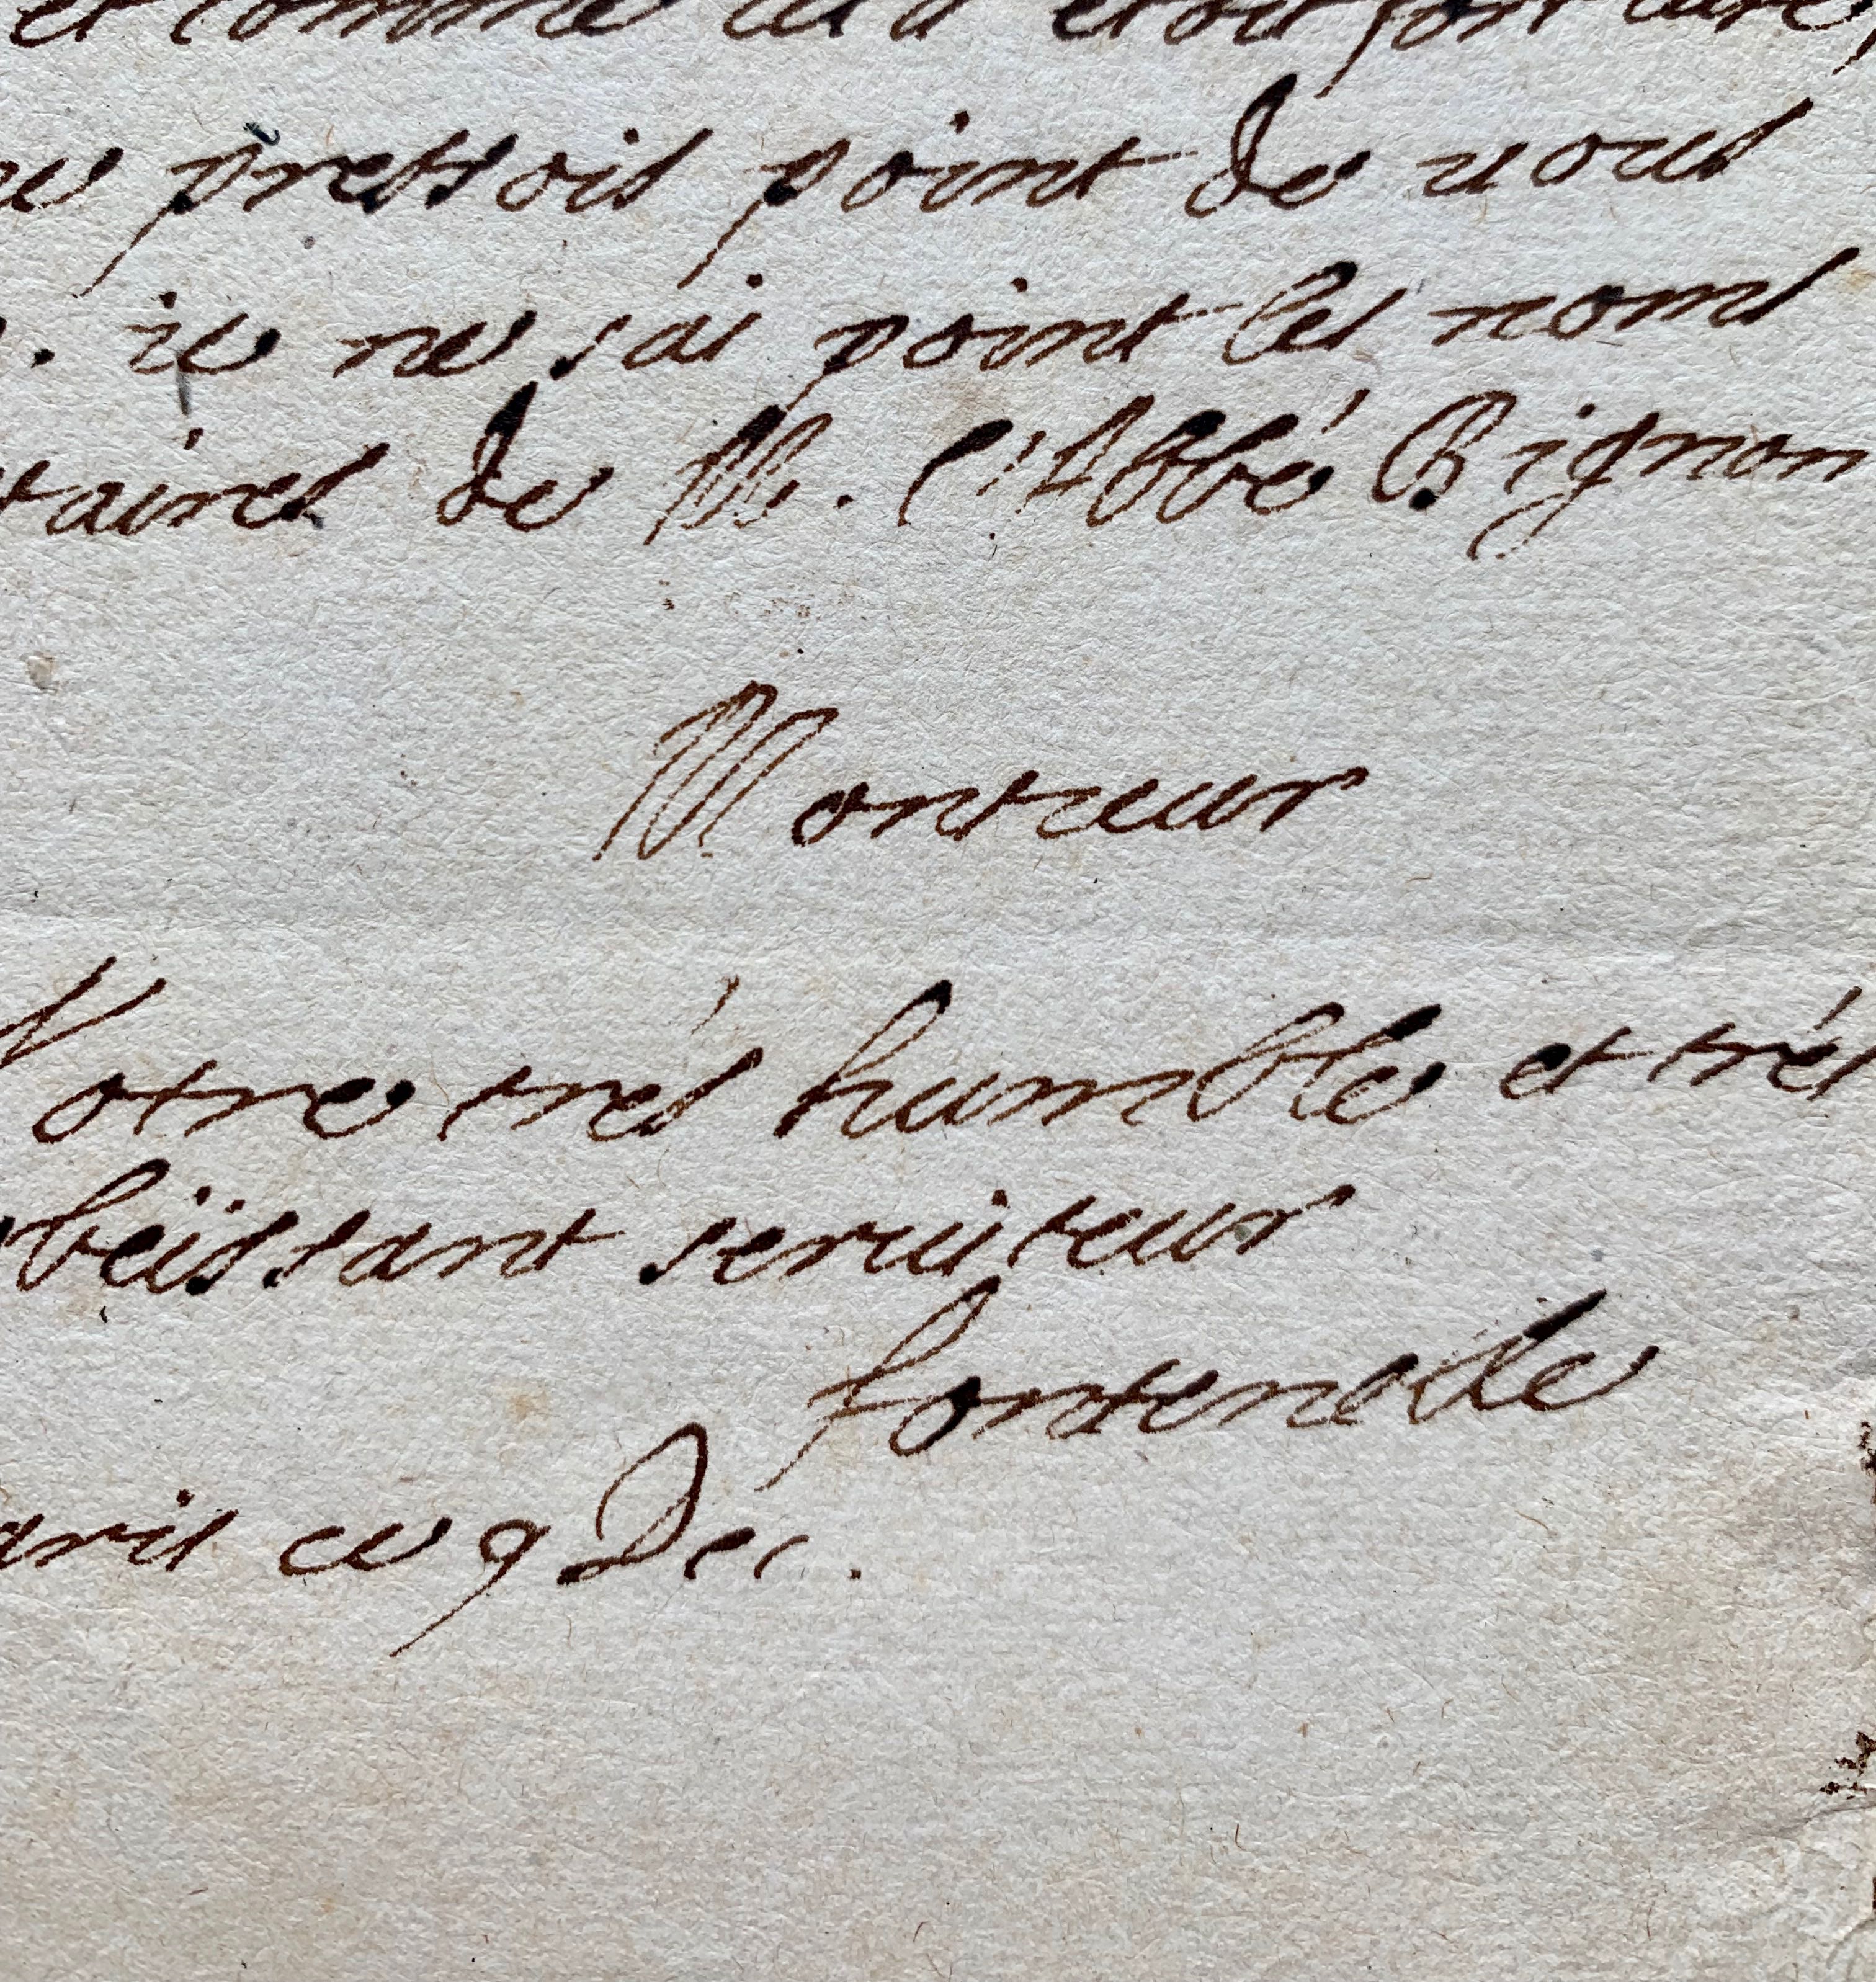 et comme cela etoit fort
pressois point de vous
. ie ne sai point les noms
taires de M. l'Abbé Bignon
Monsieur
Votre trés humble et trés
obeïssant seruiteur
fontenelle
aris ce 9 Dec.